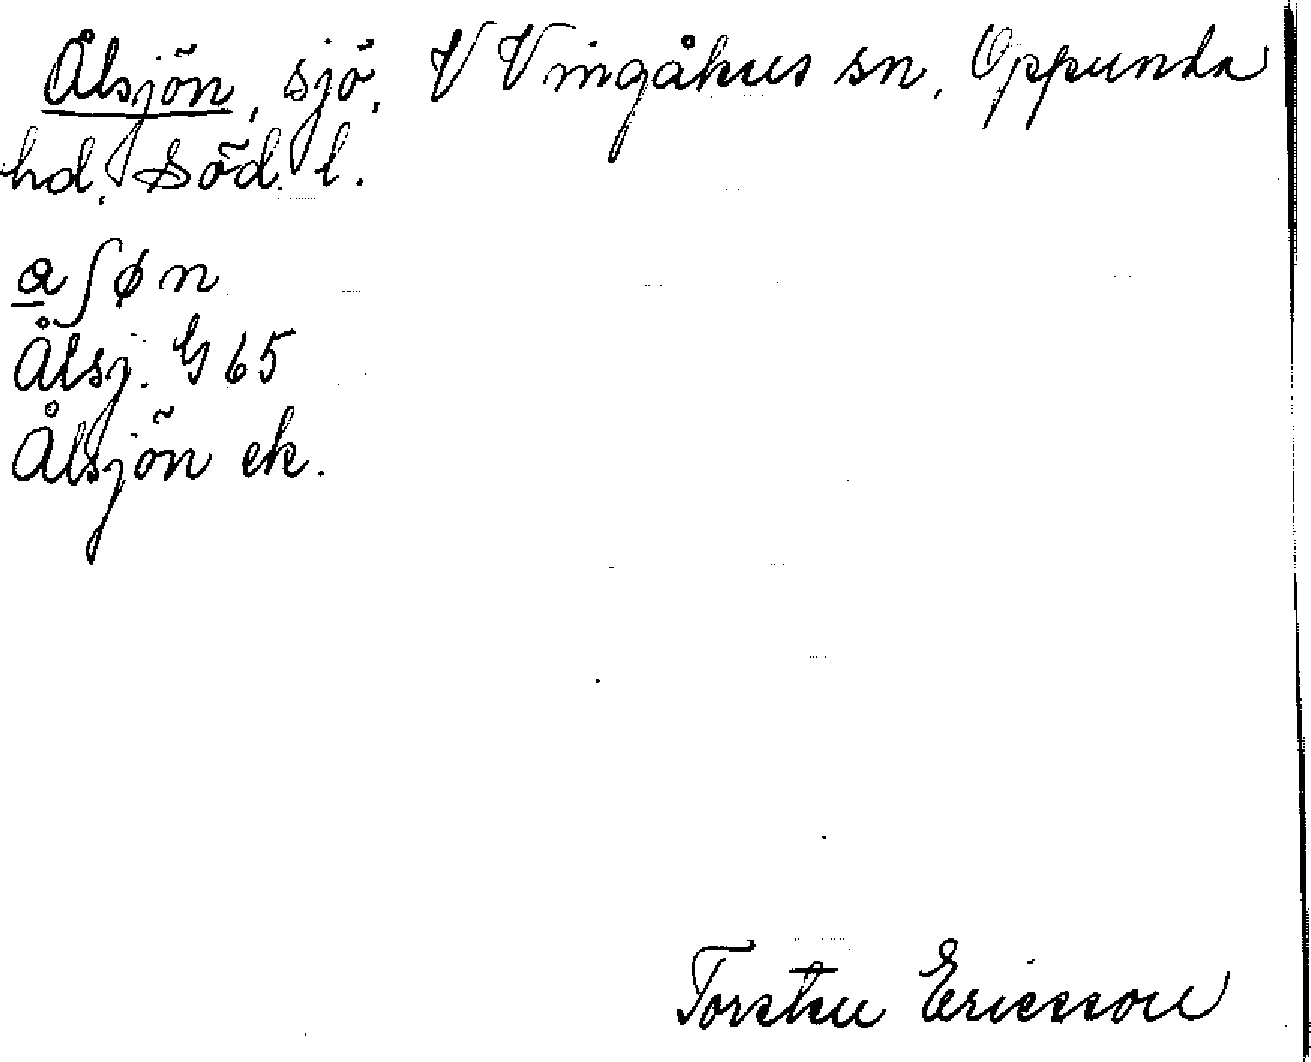 Ålsjön, sjö, V Vingåkers sn, Oppunda
hd, Söd. l.
a̲ʃøn
Ålsj. G 65
Ålsjön ek.
Torsten Ericsson